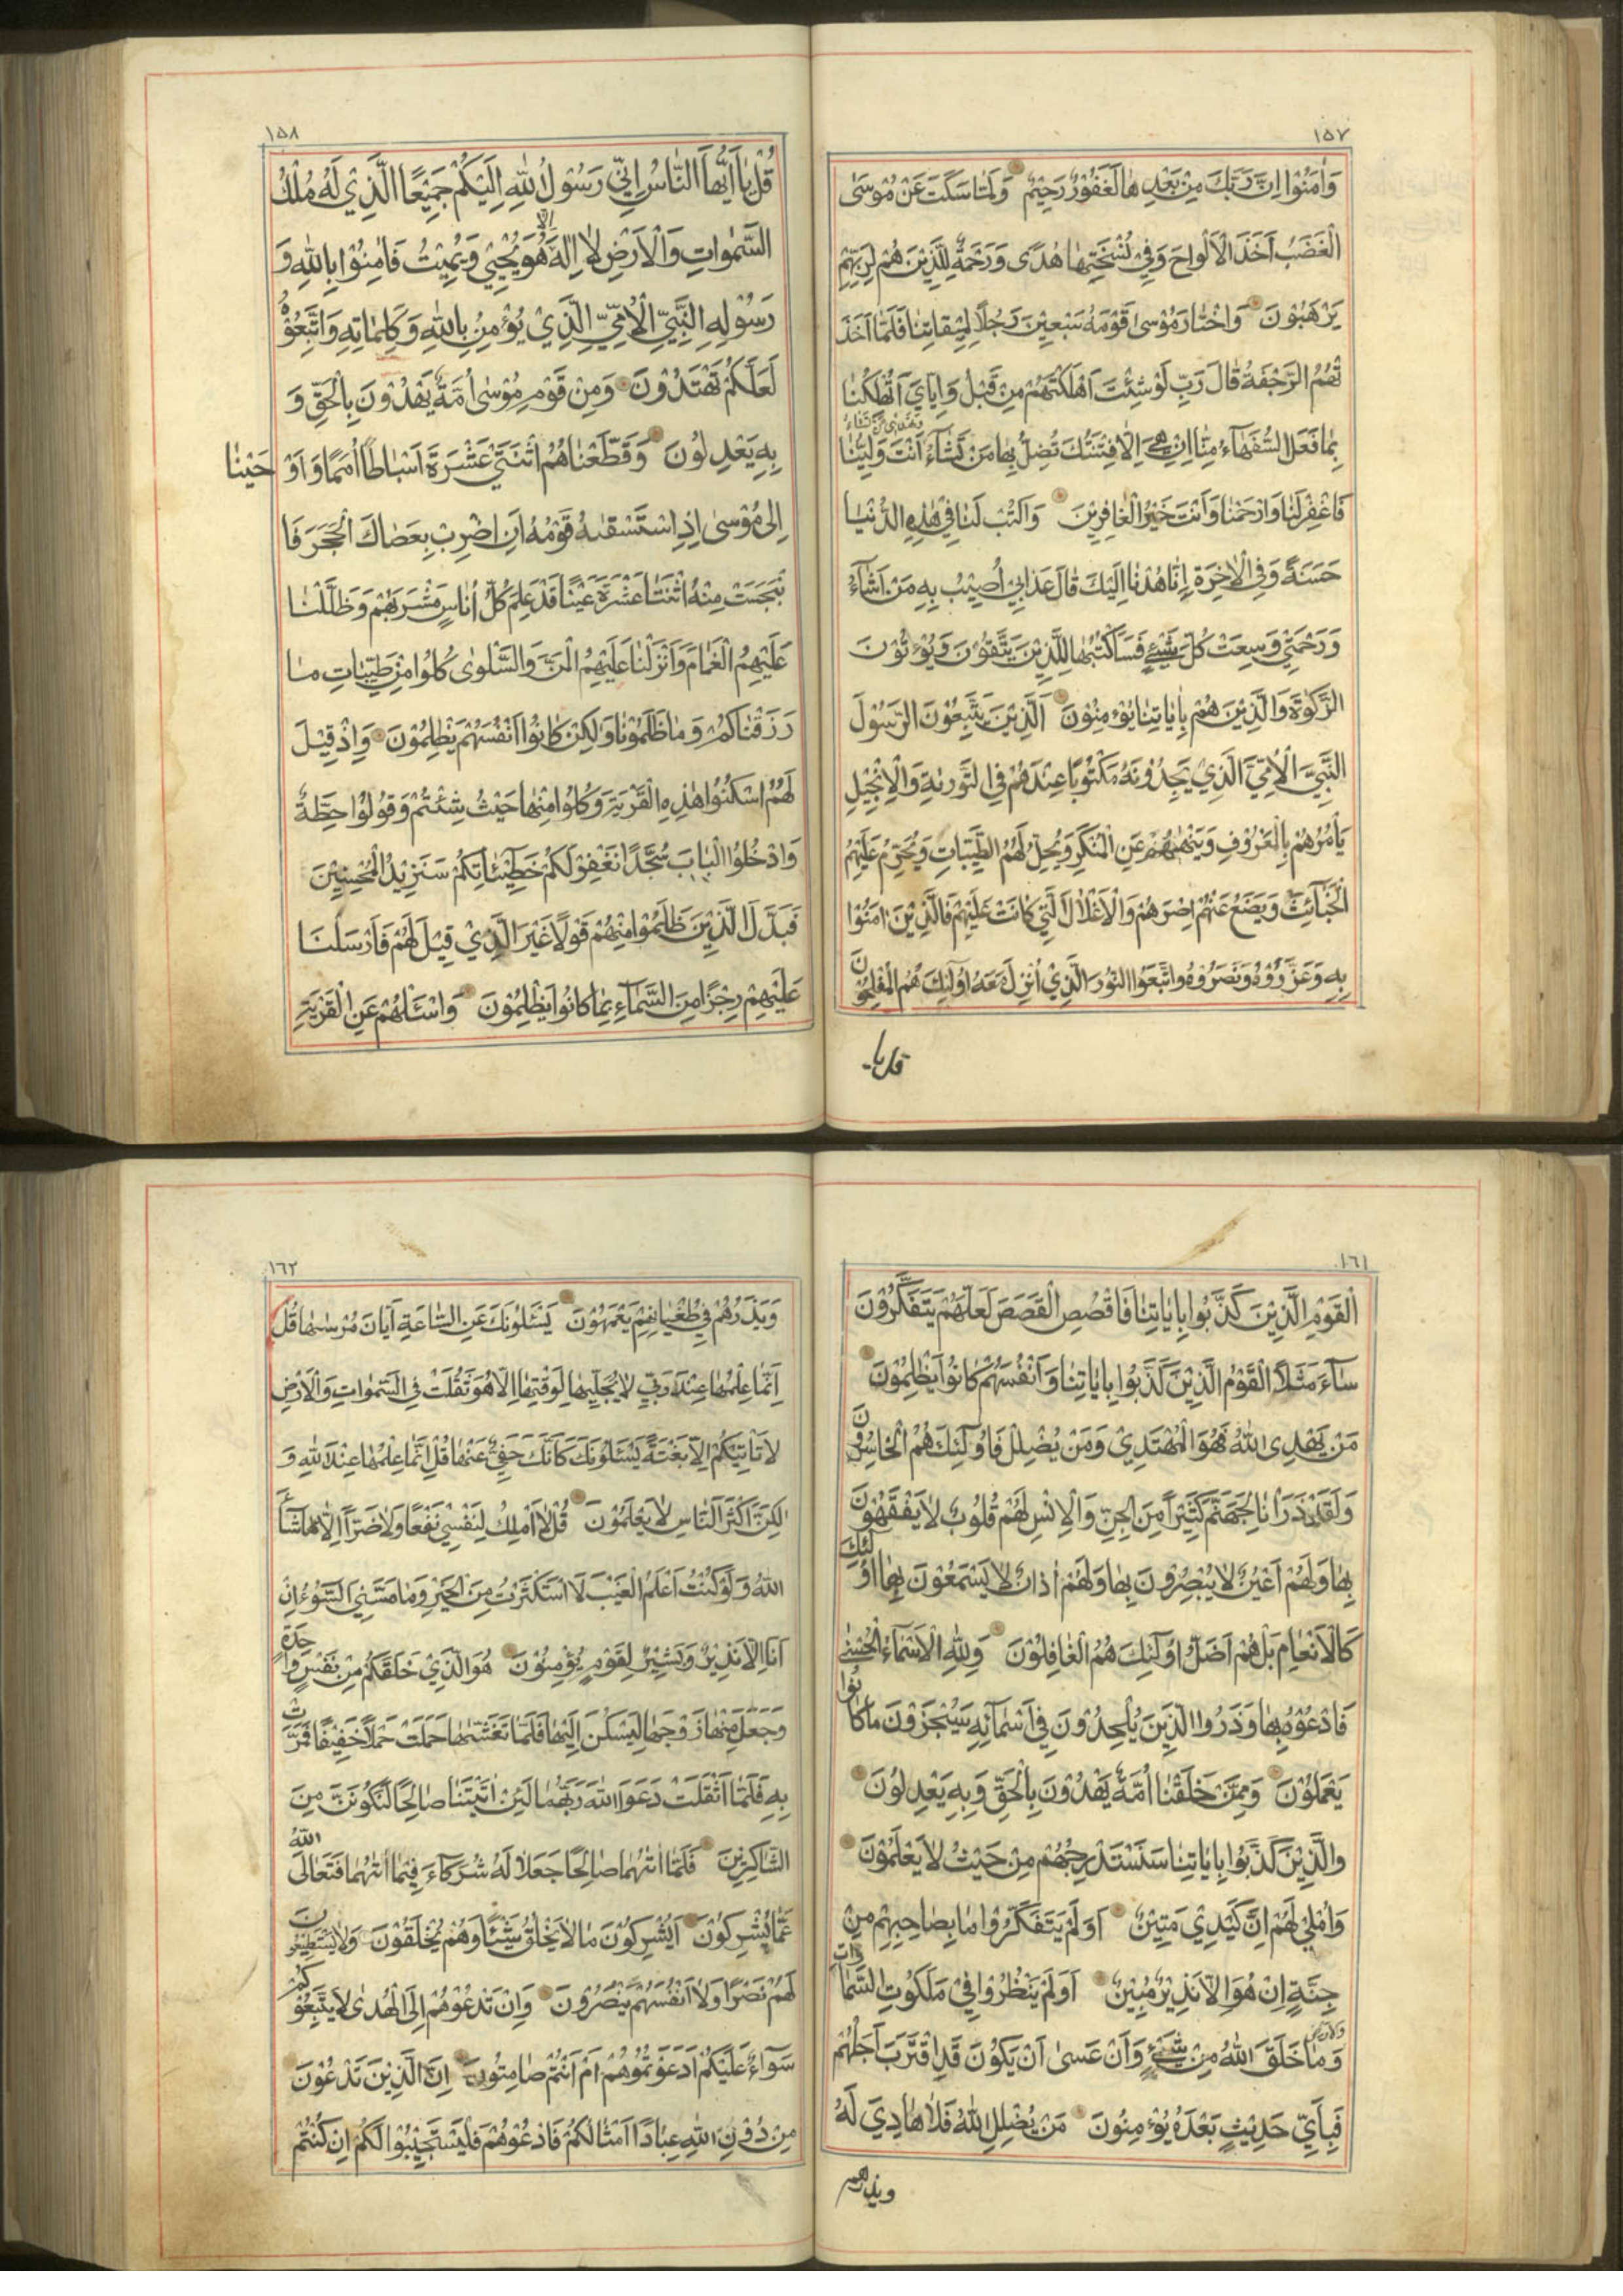 ١٥٧
وَاٰمَنُوْا اِنَّ رَبَّكَ مِنْ بَعْدِ هٰا لَغَفُوْرٌ رَحِيْمٌ وَلَمّٰا سَكَتَ عَنْ مُوْسَى
الْغَضَبُ اَخَذَ الْاَلْوٰاحَ وَفِيْ نُسْخَتِهٰا هُدًى وَرَحْمَةٌ لِلَّذِيْنَ هُمْ لِرَبِّهِمْ
يَرْهَبُوْنَ وَاخْتٰارَ مُوْسىٰ قَوْمَهُ سَبْعِيْنَ رَجُلًا لِمِيْقٰاتِنٰا فَلَمّٰا اَخَذَ
تْهُمُ الرَّجْفَةُ قٰالَ رَبِّ لَوْ شِئْتَ اَهْلَكْتَهُمْ مِنْ قَبْلُ وَاِيّٰايَ اَتُهْلِكُنٰا
وتهدي من تشاء
بِمٰا فَعَلَ السُّفَهٰآءُ مِنّٰا اِنْ هِيَ اِلّٰا فِتْنَتُكَ تُضِلُّ بِهٰا مَنْ تَشٰآءُ اَنْتَ وَلِيُّنٰا
فَاغْفِرْ لَنٰا وَارْحَمْنٰا وَاَنْتَ خَيْرُ الْغٰافِرِيْنَ وَاكْتُبْ لَنٰا فِيْ هٰذِهِ الدُّنْيٰا
حَسَنَةً وَفِي الْاٰخِرَةِ اِنّٰا هُدْنٰا اِلَيْكَ قٰالَ عَذٰابِيْ اُصِيْبُ بِهِ مَنْ اَشٰآءُ
وَرَحْمَتِيْ وَسِعَتْ كُلَّ شَيْءٍ فَسَاَكْتُبُهٰا لِلَّذِيْنَ يَتَّقُوْنَ وَيُؤْتُوْنَ
الزَّكٰوةَ وَالَّذِيْنَ هُمْ بِاٰيٰاتِنٰا يُؤْمِنُوْنَ اَلَّذِيْنَ يَتَّبِعُوْنَ الرَّسُوْلَ
النَّبِيَّ الْاُمِّيَّ الَّذِيْ يَجِدُوْنَهُ مَكْتُوْبًا عِنْدَهُمْ فِي التَّوْرٰيةِ وَالْاِنْجِيْلِ
يَأْمُرُهُمْ بِالْمَعْرُوْفِ وَيَنْهٰيهُمْ عَنِ الْمُنْكَرِ وَيُحِلُّ لَهُمُ الطَّيِّبٰاتِ وَيُحَرِّمُ عَلَيْهِمُ
الْخَبٰآئِثَ وَيَضَعُ عَنْهُمْ اِصْرَهُمْ وَالْاَغْلٰالَ الَّتِيْ كٰانَتْ عَلَيْهِمْ فَالَّذِيْنَ اٰمَنُوْا
بِهِ وَعَزَّرُوْهُ وَنَصَرُوْهُ وَاتَّبَعُوا النُّوْرَ الَّذِيْ اُنْزِلَ مَعَهُ اُولٰئِكَ هُمُ الْمُفْلِحُوْنَ
قل يا
١٥٨
قُلْ يٰا اَيُّهَا النّٰاسُ اِنِّيْ رَسُوْلُ اللّٰهِ اِلَيْكُمْ جَمِيْعًا الَّذِيْ لَهُ مُلْكُ
السَّمٰوٰاتِ وَالْاَرْضِ لٰا اِلٰهَ اِلّٰا هُوَ يُحْيِيْ وَيُمِيْتُ فَاٰمِنُوْا بِاللّٰهِ وَ
رَسُوْلِهِ النَّبِيِّ الْاُمِّيِّ الَّذِيْ يُؤْمِنُ بِاللّٰهِ وَكَلِمٰاتِهِ وَاتَّبِعُوْهُ
لَعَلَّكُمْ تَهْتَدُوْنَ وَمِنْ قَوْمِ مُوْسٰى اُمَّةٌ يَهْدُوْنَ بِالْحَقِّ وَ
بِهِ يَعْدِلُوْنَ وَقَطَّعْنٰاهُمُ اثْنَتَيْ عَشْرَةَ اَسْبٰاطًا اُمَمًا وَاَوْحَيْنٰا
اِلىٰ مُوْسىٰ اِذِ اسْتَسْقٰىهُ قَوْمُهُ اَنِ اضْرِبْ بِعَصٰاكَ الْحَجَرَ فَا
نْبَجَسَتْ مِنْهُ اثْنَتٰا عَشْرَةَ عَيْنًا قَدْ عَلِمَ كُلُّ اُنٰاسٍ مَشْرَبَهُمْ وَظَلَّلْنٰا
عَلَيْهِمُ الْغَمٰامَ وَاَنْزَلْنٰا عَلَيْهِمُ الْمَنَّ وَالسَّلْوٰى كُلُوْا مِنْ طَيِّبٰاتِ مٰا
رَزَقْنٰاكُمْ وَمٰا ظَلَمُوْنٰا وَلٰكِنْ كٰانُوْا اَنْفُسَهُمْ يَظْلِمُوْنَ وَاِذْ قِيْلَ
لَهُمُ اسْكُنُوْا هٰذِهِ الْقَرْيَةَ وَكُلُوْا مِنْهٰا حَيْثُ شِئْتُمْ وَقُوْلُوْا حِطَّةٌ
وَادْخُلُوا الْبٰابَ سُجَّدًا نَغْفِرْ لَكُمْ خَطِيْئٰاتِكُمْ سَنَزِيْدُ الْمُحْسِنِيْنَ
فَبَدَّلَ الَّذِيْنَ ظَلَمُوْا مِنْهُمْ قَوْلًا غَيْرَ الَّذِيْ قِيْلَ لَهُمْ فَاَرْسَلْنٰا
عَلَيْهِمْ رِجْزًا مِنَ السَّمٰآءِ بِمٰا كٰانُوْا يَظْلِمُوْنَ وَاسْئَلْهُمْ عَنِ الْقَرْيَةِ
١٦١
الْقَوْمِ الَّذِيْنَ كَذَّبُوْا بِاٰيٰاتِنٰا فَاقْصُصِ الْقَصَصَ لَعَلَّهُمْ يَتَفَكَّرُوْنَ
سٰآءَ مَثَلًا الْقَوْمُ الَّذِيْنَ كَذَّبُوْا بِاٰيٰاتِنٰا وَاَنْفُسَهُمْ كٰانُوْا يَظْلِمُوْنَ
مَنْ يَهْدِى اللّٰهُ فَهُوَ الْمُهْتَدِيْ وَمَنْ يُضْلِلْ فَاُولٰئِكَ هُمُ الْخٰاسِرُوْنَ
وَلَقَدْ ذَرَأْنٰا لِجَهَنَّمَ كَثِيْرًا مِنَ الْجِنِّ وَالْاِنْسِ لَهُمْ قُلُوْبٌ لٰا يَفْقَهُوْنَ
بِهٰا وَلَهُمْ اَعْيُنٌ لٰا يُبْصِرُوْنَ بِهٰا وَلَهُمْ اٰذٰانٌ لٰا يَسْمَعُوْنَ بِهٰا اُولٰئِكَ
كَالْاَنْعٰامِ بَلْ هُمْ اَضَلُّ اُولٰئِكَ هُمُ الْغٰافِلُوْنَ وَلِلّٰهِ الْاَسْمٰآءُ الْحُسْنٰى
فَادْعُوْهُ بِهٰا وَذَرُوا الَّذِيْنَ يُلْحِدُوْنَ فِيْ اَسْمٰآئِهِ سَيُجْزَوْنَ مٰا كٰانُوْا
يَعْمَلُوْنَ وَمِمَّنْ خَلَقْنٰا اُمَّةٌ يَهْدُوْنَ بِالْحَقِّ وَبِهِ يَعْدِلُوْنَ
وَالَّذِيْنَ كَذَّبُوْا بِاٰيٰاتِنٰا سَنَسْتَدْرِجُهُمْ مِنْ حَيْثُ لٰا يَعْلَمُوْنَ
وَاُمْلِيْ لَهُمْ اِنَّ كَيْدِيْ مَتِيْنٌ اَوَلَمْ يَتَفَكَّرُوْا مٰا بِصٰاحِبِهِمْ مِنْ
جِنَّةٍ اِنْ هُوَ اِلّٰا نَذِيْرٌ مُبِيْنٌ اَوَلَمْ يَنْظُرُوْا فِيْ مَلَكُوْتِ السَّمٰوٰاتِ
والارض
وَمٰا خَلَقَ اللّٰهُ مِنْ شَيْءٍ وَاَنْ عَسىٰ اَنْ يَكُوْنَ قَدِ اقْتَرَبَ اَجَلُهُمْ
فَبِاَيِّ حَدِيْثٍ بَعْدَهُ يُؤْمِنُوْنَ مَنْ يُضْلِلِ اللّٰهُ فَلٰا هٰادِيَ لَهُ
ويذرهم
١٦٢
وَيَذَرُهُمْ فِيْ طُغْيٰانِهِمْ يَعْمَهُوْنَ يَسْئَلُوْنَكَ عَنِ السّٰاعَةِ اَيّٰانَ مُرْسٰىهٰا قُلْ
اِنَّمٰا عِلْمُهٰا عِنْدَ رَبِّيْ لٰا يُجَلِّيْهٰا لِوَقْتِهٰا اِلّٰا هُوَ ثَقُلَتْ فِي السَّمٰوٰاتِ وَالْاَرْضِ
لٰا تَأْتِيْكُمْ اِلّٰا بَغْتَةً يَسْئَلُوْنَكَ كَاَنَّكَ حَفِيٌّ عَنْهٰا قُلْ اِنَّمٰا عِلْمُهٰا عِنْدَ اللّٰهِ وَ
لٰكِنَّ اَكْثَرَ النّٰاسِ لٰا يَعْلَمُوْنَ قُلْ لٰا اَمْلِكُ لِنَفْسِيْ نَفْعًا وَلٰا ضَرًّا اِلّٰا مٰا شٰآءَ
اللّٰهُ وَلَوْ كُنْتُ اَعْلَمُ الْغَيْبَ لَا اسْتَكْثَرْتُ مِنَ الْخَيْرِ وَمٰا مَسَّنِيَ السُّوْءُ اِنْ
اَنَا اِلّٰا نَذِيْرٌ وَبَشِيْرٌ لِقَوْمٍ يُؤْمِنُوْنَ هُوَ الَّذِيْ خَلَقَكُمْ مِنْ نَفْسٍ وٰاحِدَةٍ
وَجَعَلَ مِنْهٰا زَوْجَهٰا لِيَسْكُنَ اِلَيْهٰا فَلَمّٰا تَغَشّٰىهٰا حَمَلَتْ حَمْلًا خَفِيْفًا فَمَرَّتْ
بِهِ فَلَمّٰا اَثْقَلَتْ دَعَوَا اللّٰهَ رَبَّهُمٰا لَئِنْ اٰتَيْتَنٰا صٰالِحًا لَنَكُوْنَنَّ مِنَ
الشّٰاكِرِيْنَ فَلَمّٰا اٰتٰيهُمٰا صٰالِحًا جَعَلٰا لَهُ شُرَكٰآءَ فِيْمٰا اٰتٰيهُمٰا فَتَعٰالَى اللّٰهُ
عَمّٰا يُشْرِكُوْنَ اَيُشْرِكُوْنَ مٰا لٰا يَخْلُقُ شَيْئًا وَهُمْ يُخْلَقُوْنَ وَلٰا يَسْتَطِيْعُوْنَ
لَهُمْ نَصْرًا وَلٰا اَنْفُسَهُمْ يَنْصُرُوْنَ وَاِنْ تَدْعُوْهُمْ اِلَى الْهُدٰى لٰا يَتَّبِعُوْكُمْ
سَوٰآءٌ عَلَيْكُمْ اَدَعَوْتُمُوْهُمْ اَمْ اَنْتُمْ صٰامِتُوْنَ اِنَّ الَّذِيْنَ تَدْعُوْنَ
مِنْ دُوْنِ اللّٰهِ عِبٰادًا اَمْثٰالُكُمْ فَادْعُوْهُمْ فَلْيَسْتَجِيْبُوْا لَكُمْ اِنْ كُنْتُمْ